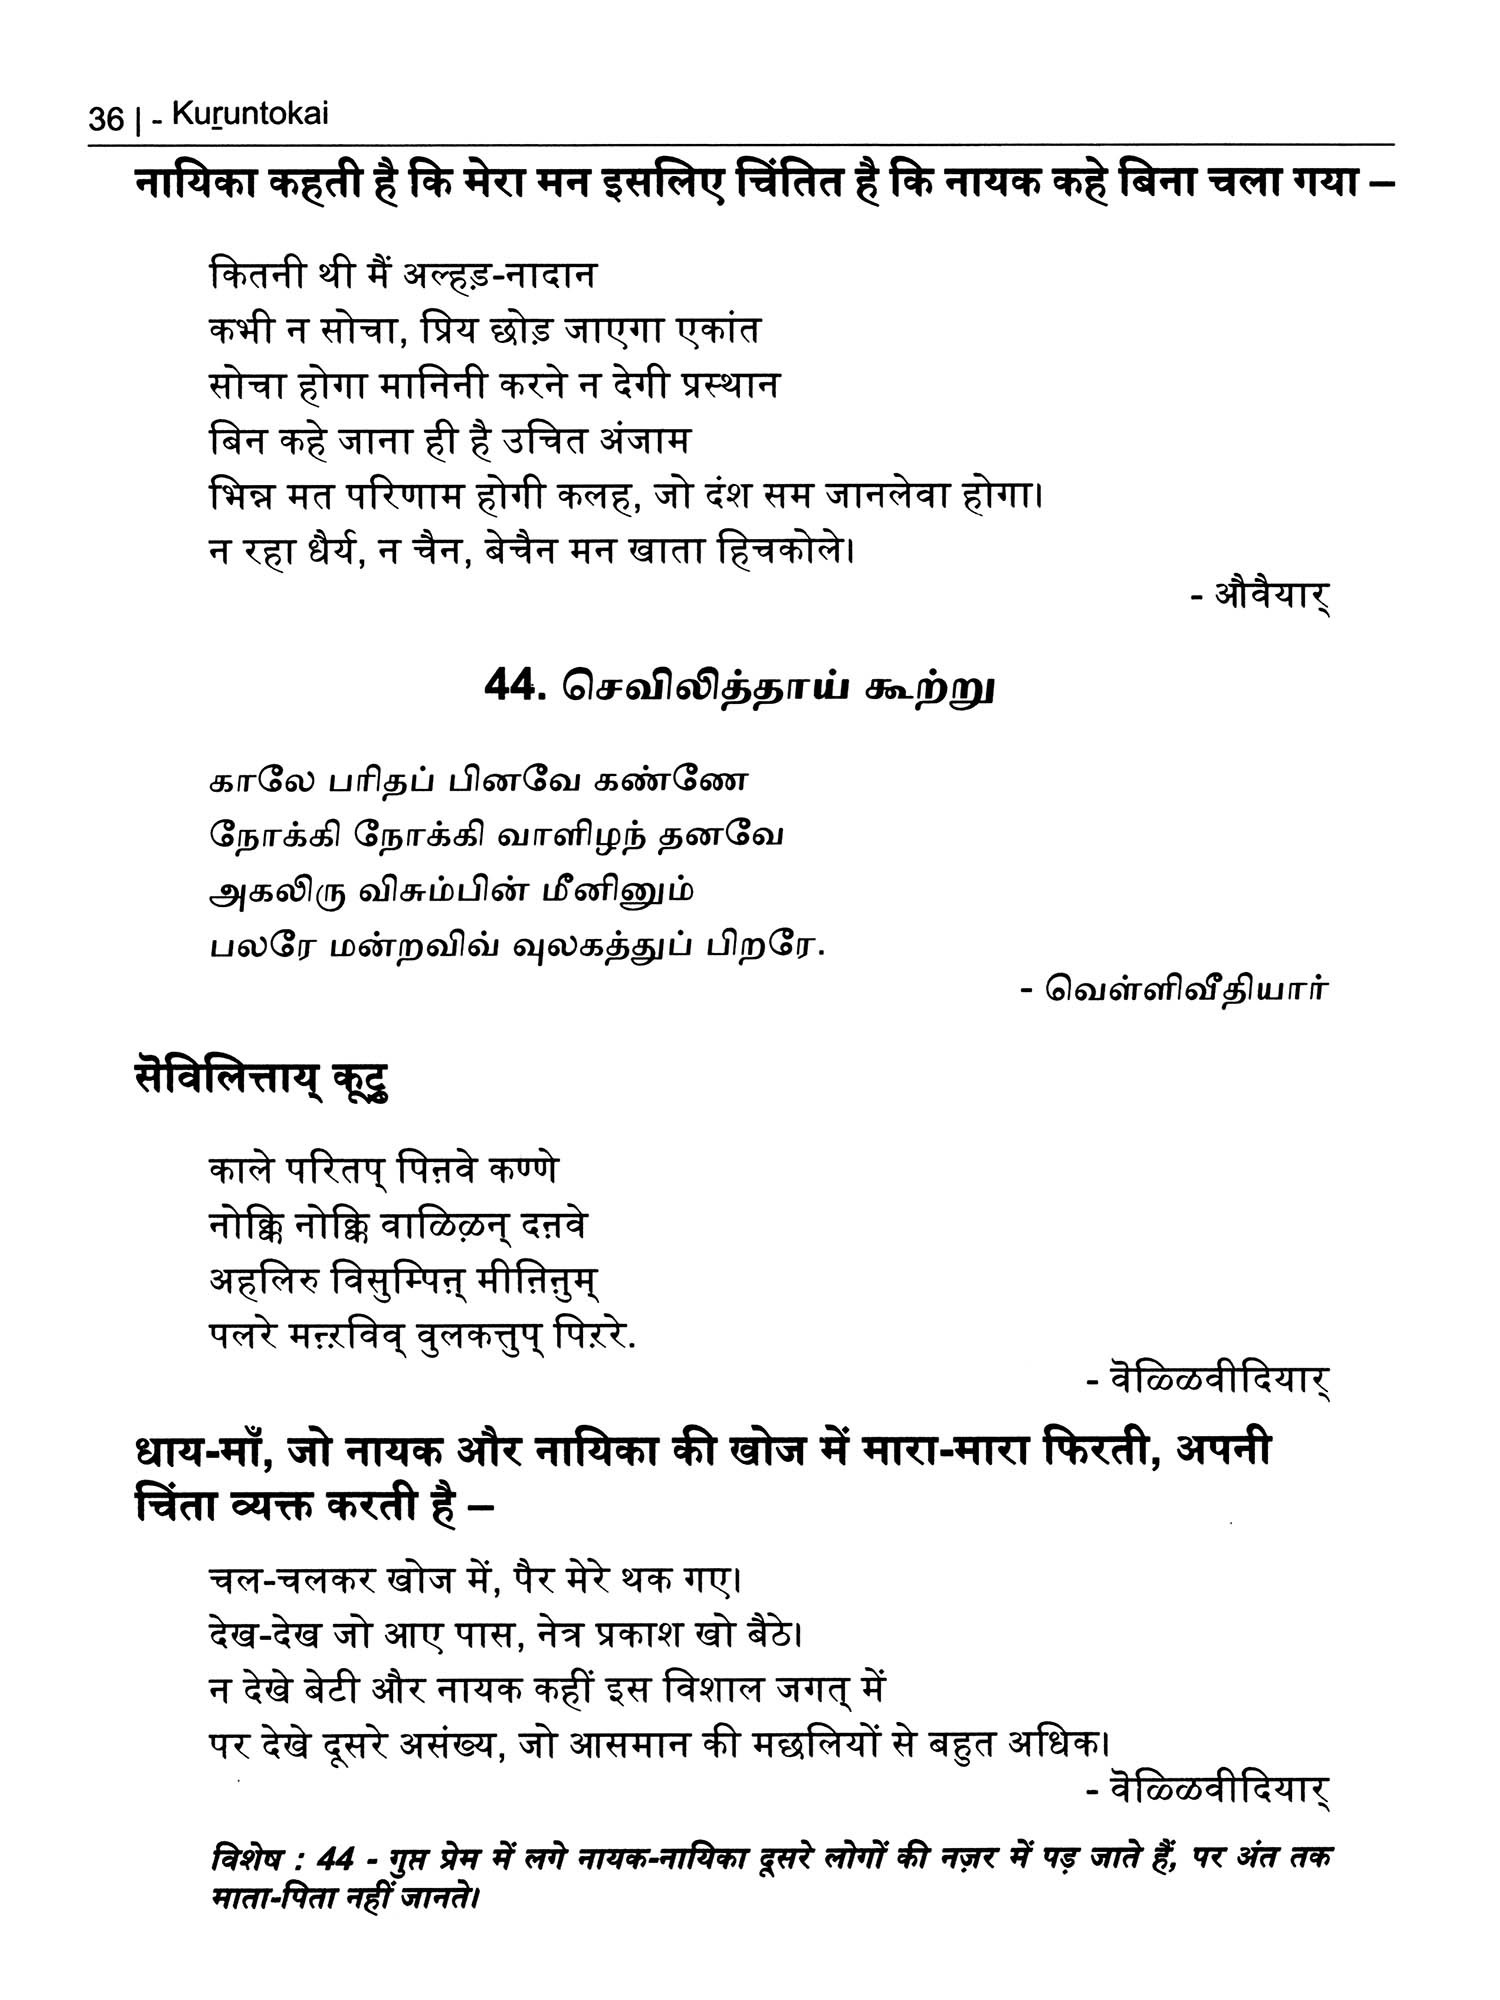 36 | - Kuṟuntokai
नायिका कहती है कि मेरा मन इसलिए चिंतित है कि नायक कहे बिना चला गया –
कितनी थी मैं अल्हड़-नादान
कभी न सोचा, प्रिय छोड़ जाएगा एकांत
सोचा होगा मानिनी करने न देगी प्रस्थान
बिन कहे जाना ही है उचित अंजाम
भिन्न मत परिणाम होगी कलह, जो दंश सम जानलेवा होगा।
न रहा धैर्य, न चैन, बेचैन मन खाता हिचकोले।
- औवैयार्
44. செவிலித்தாய் கூற்று
காலே பரிதப் பினவே கண்ணே
நோக்கி நோக்கி வாளிழந் தனவே
அகலிரு விசும்பின் மீனினும்
பலரே மன்றவிவ் வுலகத்துப் பிறரே.
- வெள்ளிவீதியார்
सॆविलित्ताय् कूट्रु
काले परितप् पिऩवे कण्णे
नोक्कि नोक्कि वाळिऴन् दऩवे
अहलिरु विसुम्पिऩ् मीऩिऩुम्
पलरे मऩ्ऱविव् वुलकत्तुप् पिऱरे.
- वॆळ्ळिवीदियार्
धाय-माँ, जो नायक और नायिका की खोज में मारा-मारा फिरती, अपनी
चिंता व्यक्त करती है –
चल-चलकर खोज में, पैर मेरे थक गए।
देख-देख जो आए पास, नेत्र प्रकाश खो बैठे।
न देखे बेटी और नायक कहीं इस विशाल जगत् में
पर देखे दूसरे असंख्य, जो आसमान की मछलियों से बहुत अधिक।
- वॆळ्ळिवीदियार्
विशेष : 44 - गुप्त प्रेम में लगे नायक-नायिका दूसरे लोगों की नज़र में पड़ जाते हैं, पर अंत तक
माता-पिता नहीं जानते।